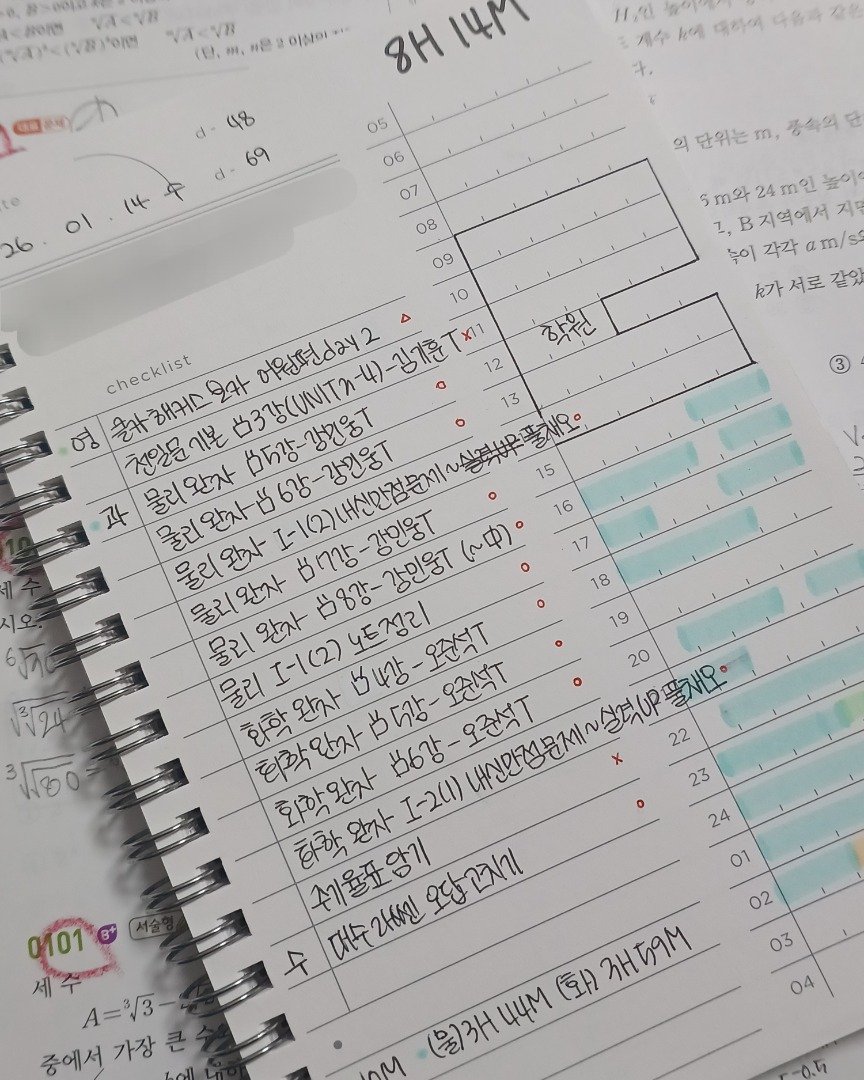 8H 14M
d- 48
d- 69
26 . 01 . 14 수
checklist
영
클카 해커스 보카 어원편 day 2
천일문 기본 인강 3강 (UNIT 7~4) - 김기훈T
과
물리 완자 인강 5강 - 강민웅T
물리 완자 인강 6강 - 강민웅T
물리 완자 I-1(2) 내신만점문제 ~ 실력UP 풀채오
물리 완자 인강 7강 - 강민웅T
물리 완자 인강 8강 - 강민웅T (~中)
물리 I-1(2) 노트정리
화학 완자 인강 4강 - 오준석T
화학 완자 인강 5강 - 오준석T
화학 완자 인강 6강 - 오준석T
화학 완자 I-2(1) 내신만점문제 ~ 실력UP 풀채오
주기율표 암기
수
대수 라쎈 오답 고치기
(물) 3H 44M (화) 3H 59M
05
06
07
08
09
10
11
학원
12
13
15
16
17
18
19
20
22
23
24
01
02
03
04
의 단위는 m, 풍속의 단
5 m와 24 m인 높이
B 지역에서 지면
높이 각각 a m/s
k가 서로 같았
③
0101
서술형
세 수
A=³√3-
중에서 가장 큰 수